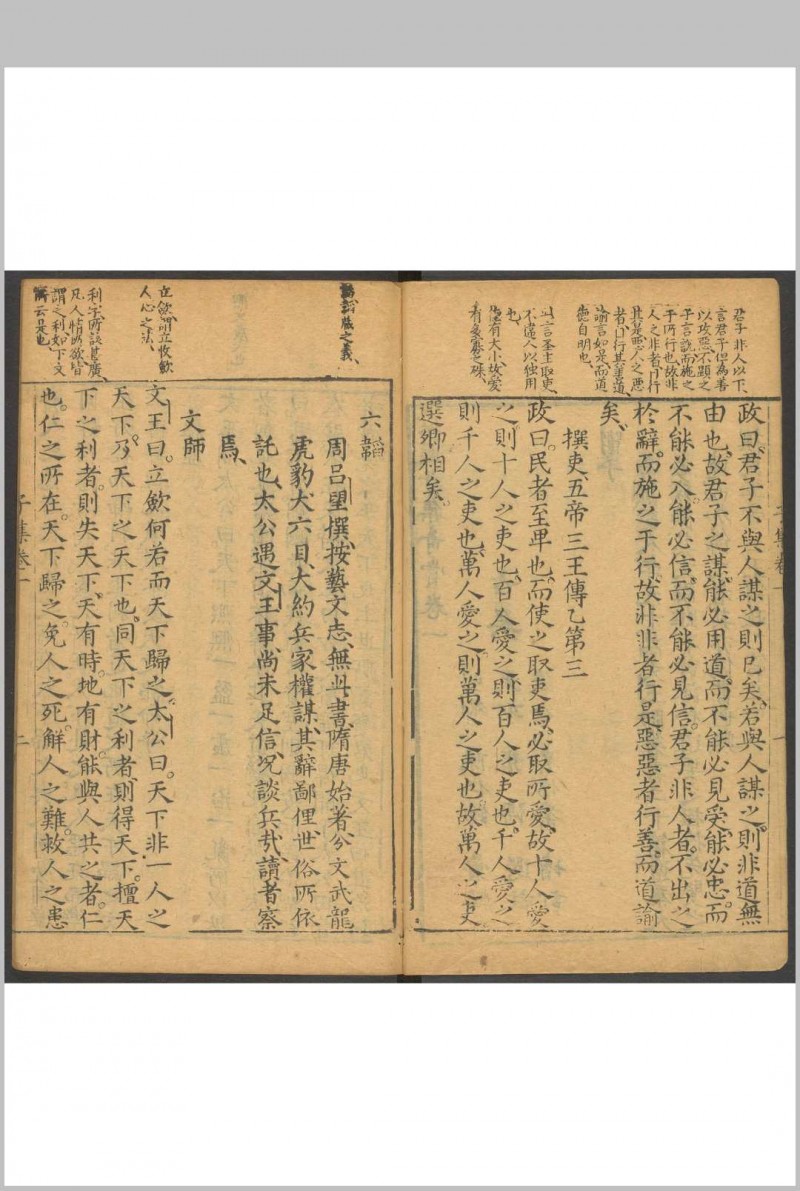 君子非人以下、
言君子但為善
以攻惡、不顯之
于言說、而施之
于所行也、故非
人之非者、曰行
其是、惡人之惡
者、曰行其善、道
諭言如是、而道
德自明也、
此言圣主取吏、
不遺人以獨用
也、
吏有大小、故愛
有衆寡之殊、
政曰。君子不與人謀之、則已矣。若與人謀之、則非道無
由也。故君子之謀、能必用道。而不能必見受。能必忠。而
不能必入。能必信。而不能必見信。君子非人者。不出之
於辭。而施之于行。故非非者行是。惡惡者行善。而道諭
矣。
撰吏五帝三王傳乙第三
政曰。民者至卑也。而使之取吏焉、必取所愛。故十人愛
之則十人之吏也。百人愛之、則百人之吏也。千人愛之
則千人之吏也。萬人愛之則萬人之吏也。故萬人之吏
選卿相矣。
子集卷一
韜韜藏之義、
立斂、謂立收斂
人心之法、
利字、所該甚廣、
凡人情所欲、皆
謂之利、如下文
所云是也
六韜
周呂望撰、按藝文志、無此書、隋唐始著、分文武龍
虎豹犬、六目、大約兵家權謀、其辭鄙俚、世俗所依
託也、太公遇文王事、尚未足信、况談兵哉、讀者察
焉、
文師
文王曰。立斂何若而天下歸之。太公曰。天下非一人之
天下。乃天下之天下也。同天下之利者、則得天下。擅天
下之利者。則失天下。天有時。地有財。能與人共之者。仁
也。仁之所在。天下歸之。免人之死。解人之難。救人之患
子集卷一
二